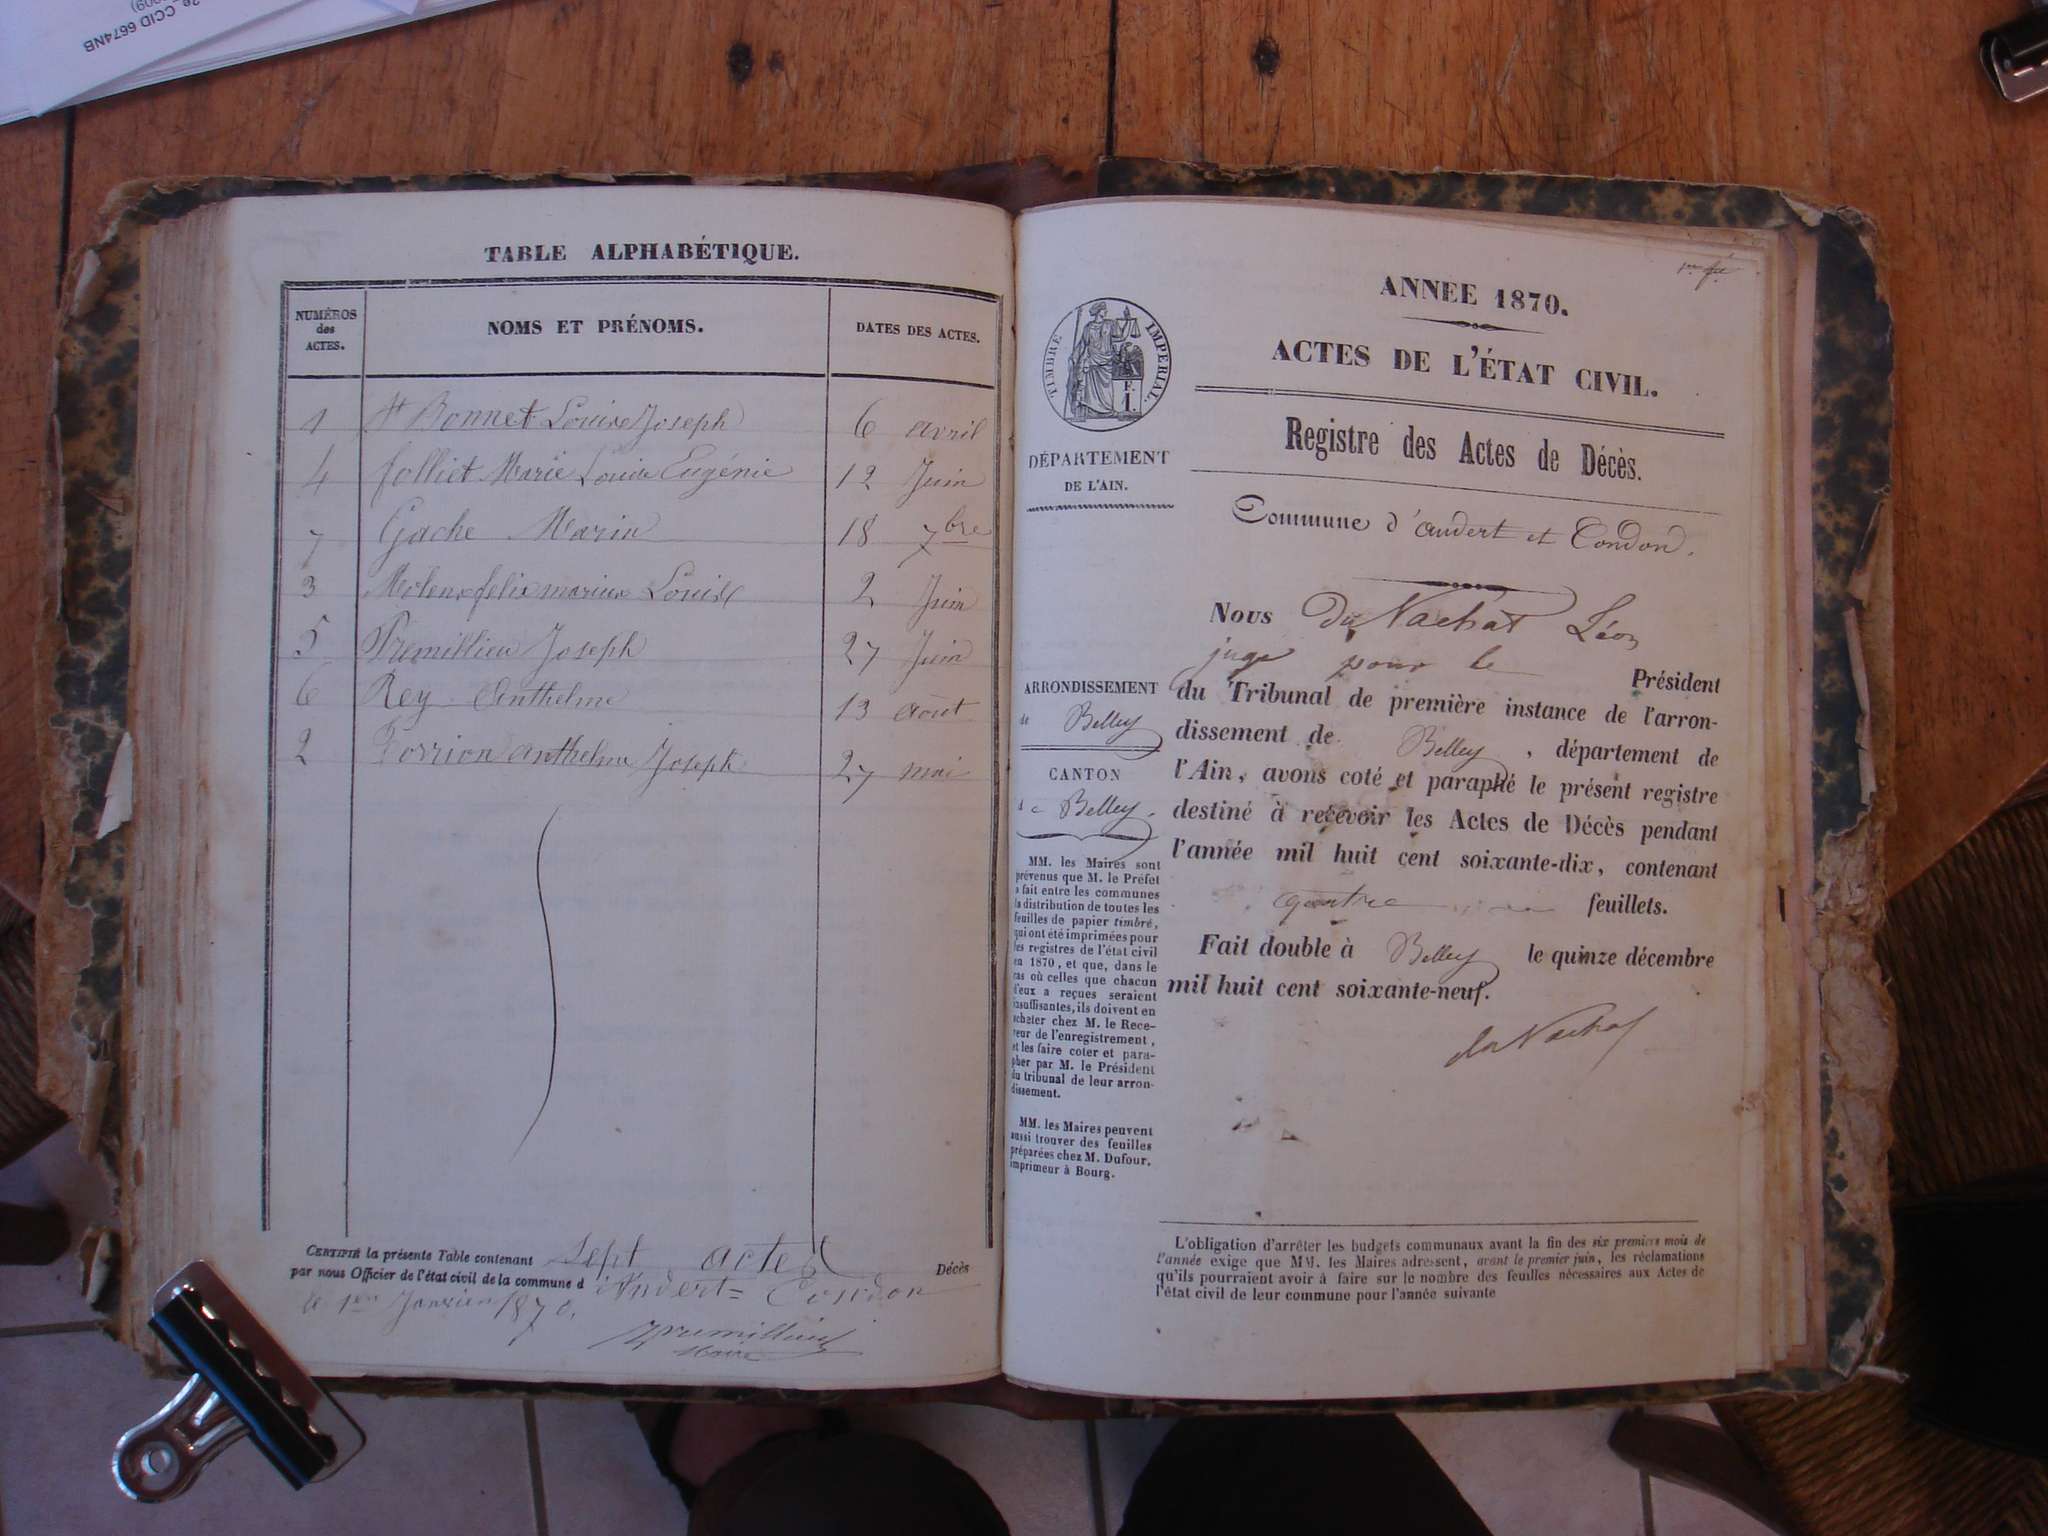 CCID 6674NB
TABLE ALPHABÉTIQUE.
NUMÉROS des ACTES.
NOMS ET PRÉNOMS.
DATES DES ACTES.
1 St Bonnet Louise Joseph 6 avril
4 folliet Marie Louise Eugénie 12 Juin
7 Gache Marin 18 7bre
3 felix marius Louis 2 Juin
5 Premillieu Joseph 27 Juin
6 Rey Anthelme 13 août
2 anthelme Joseph 27 mai
CERTIFIÉ la présente Table contenant sept actes Décès
par nous Officier de l'état civil de la commune d'Andert-Condon
le 1er Janvier 1870.
Premillieu
Maire
ANNÉE 1870.
ACTES DE L'ÉTAT CIVIL.
Registre des Actes de Décès.
Commune d'andert et Condon.
TIMBRE IMPERIAL.
DÉPARTEMENT
DE L'AIN.
ARRONDISSEMENT
de Belley
CANTON
de Belley.
MM. les Maires sont
prévenus que M. le Préfet
a fait entre les communes
la distribution de toutes les
feuilles de papier timbré,
qui ont été imprimées pour
les registres de l'état civil
en 1870, et que, dans le
cas où celles que chacun
d'eux a reçues seraient
insuffisantes, ils doivent en
acheter chez M. le Rece-
veur de l'enregistrement,
et les faire coter et para-
pher par M. le Président
du tribunal de leur arron-
dissement.
MM. les Maires peuvent
aussi trouver des feuilles
préparées chez M. Dufour,
imprimeur à Bourg.
Nous Du Nachat Léon
juge pour le Président
du Tribunal de première instance de l'arron-
dissement de Belley, département de
l'Ain, avons coté et paraphé le présent registre
destiné à recevoir les Actes de Décès pendant
l'année mil huit cent soixante-dix, contenant
quatre feuillets.
Fait double à Belley le quinze décembre
mil huit cent soixante-neuf.
du Nachat
L'obligation d'arrêter les budgets communaux avant la fin des six premiers mois de
l'année exige que MM. les Maires adressent, avant le premier juin, les réclamations
qu'ils pourraient avoir à faire sur le nombre des feuilles nécessaires aux Actes de
l'état civil de leur commune pour l'année suivante